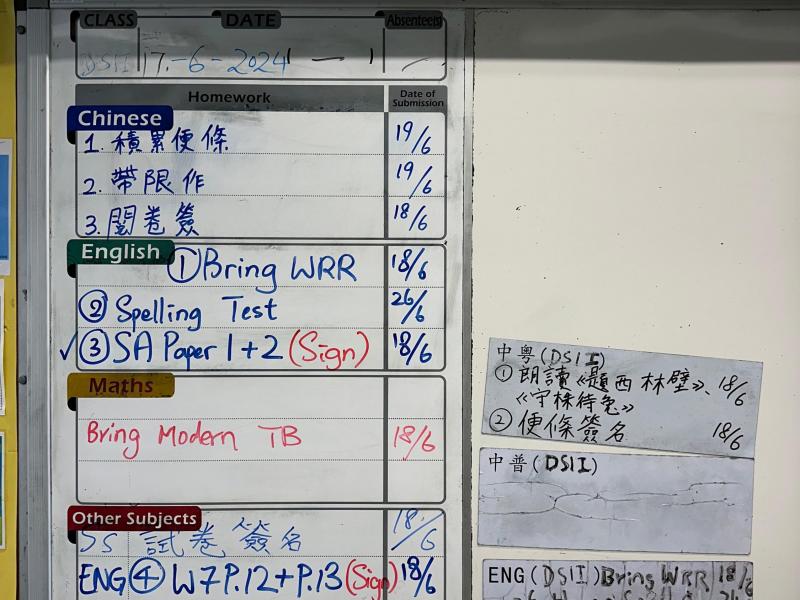 CLASS DATE Absentee(s)
DSII 17.-6-2024
Homework Date of Submission
Chinese
1. 積累便條 19/6
2. 帶限作 19/6
3. 閱卷簽 18/6
English
① Bring WRR 18/6
② Spelling Test 26/6
✓ ③ SA Paper 1+2 (Sign) 18/6
Maths
Bring Modern TB 18/6
Other Subjects
SS 試卷簽名 18/6
ENG ④ W7 P.12+P.13 (Sign) 18/6
中粵(DSII)
① 朗讀《題西林壁》、 18/6
《守株待兔》
② 便條簽名 18/6
中普(DSII)
ENG(DSII) Bring WRR 18/6